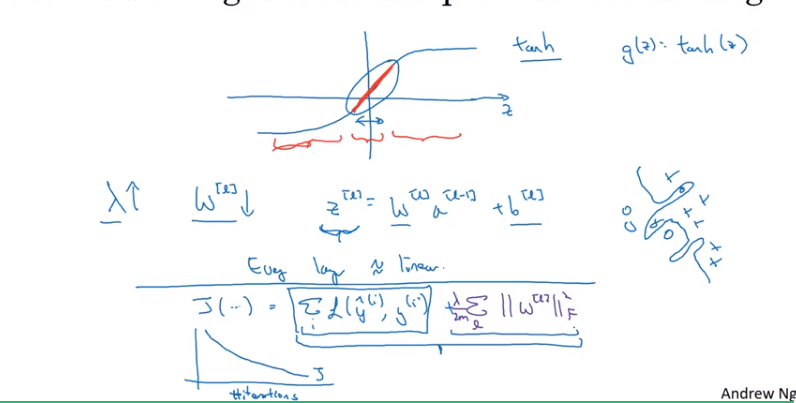 tanh g(z) = tanh(z)
z
λ↑ W^[l]↓ z^[l] = W^[l] a^[l-1] + b^[l]
Every layer ≈ linear.
J(···) = Σ_i L(ŷ^(i), y^(i)) + λ/2m Σ_l ||W^[l]||²_F
J
#iterations
Andrew Ng